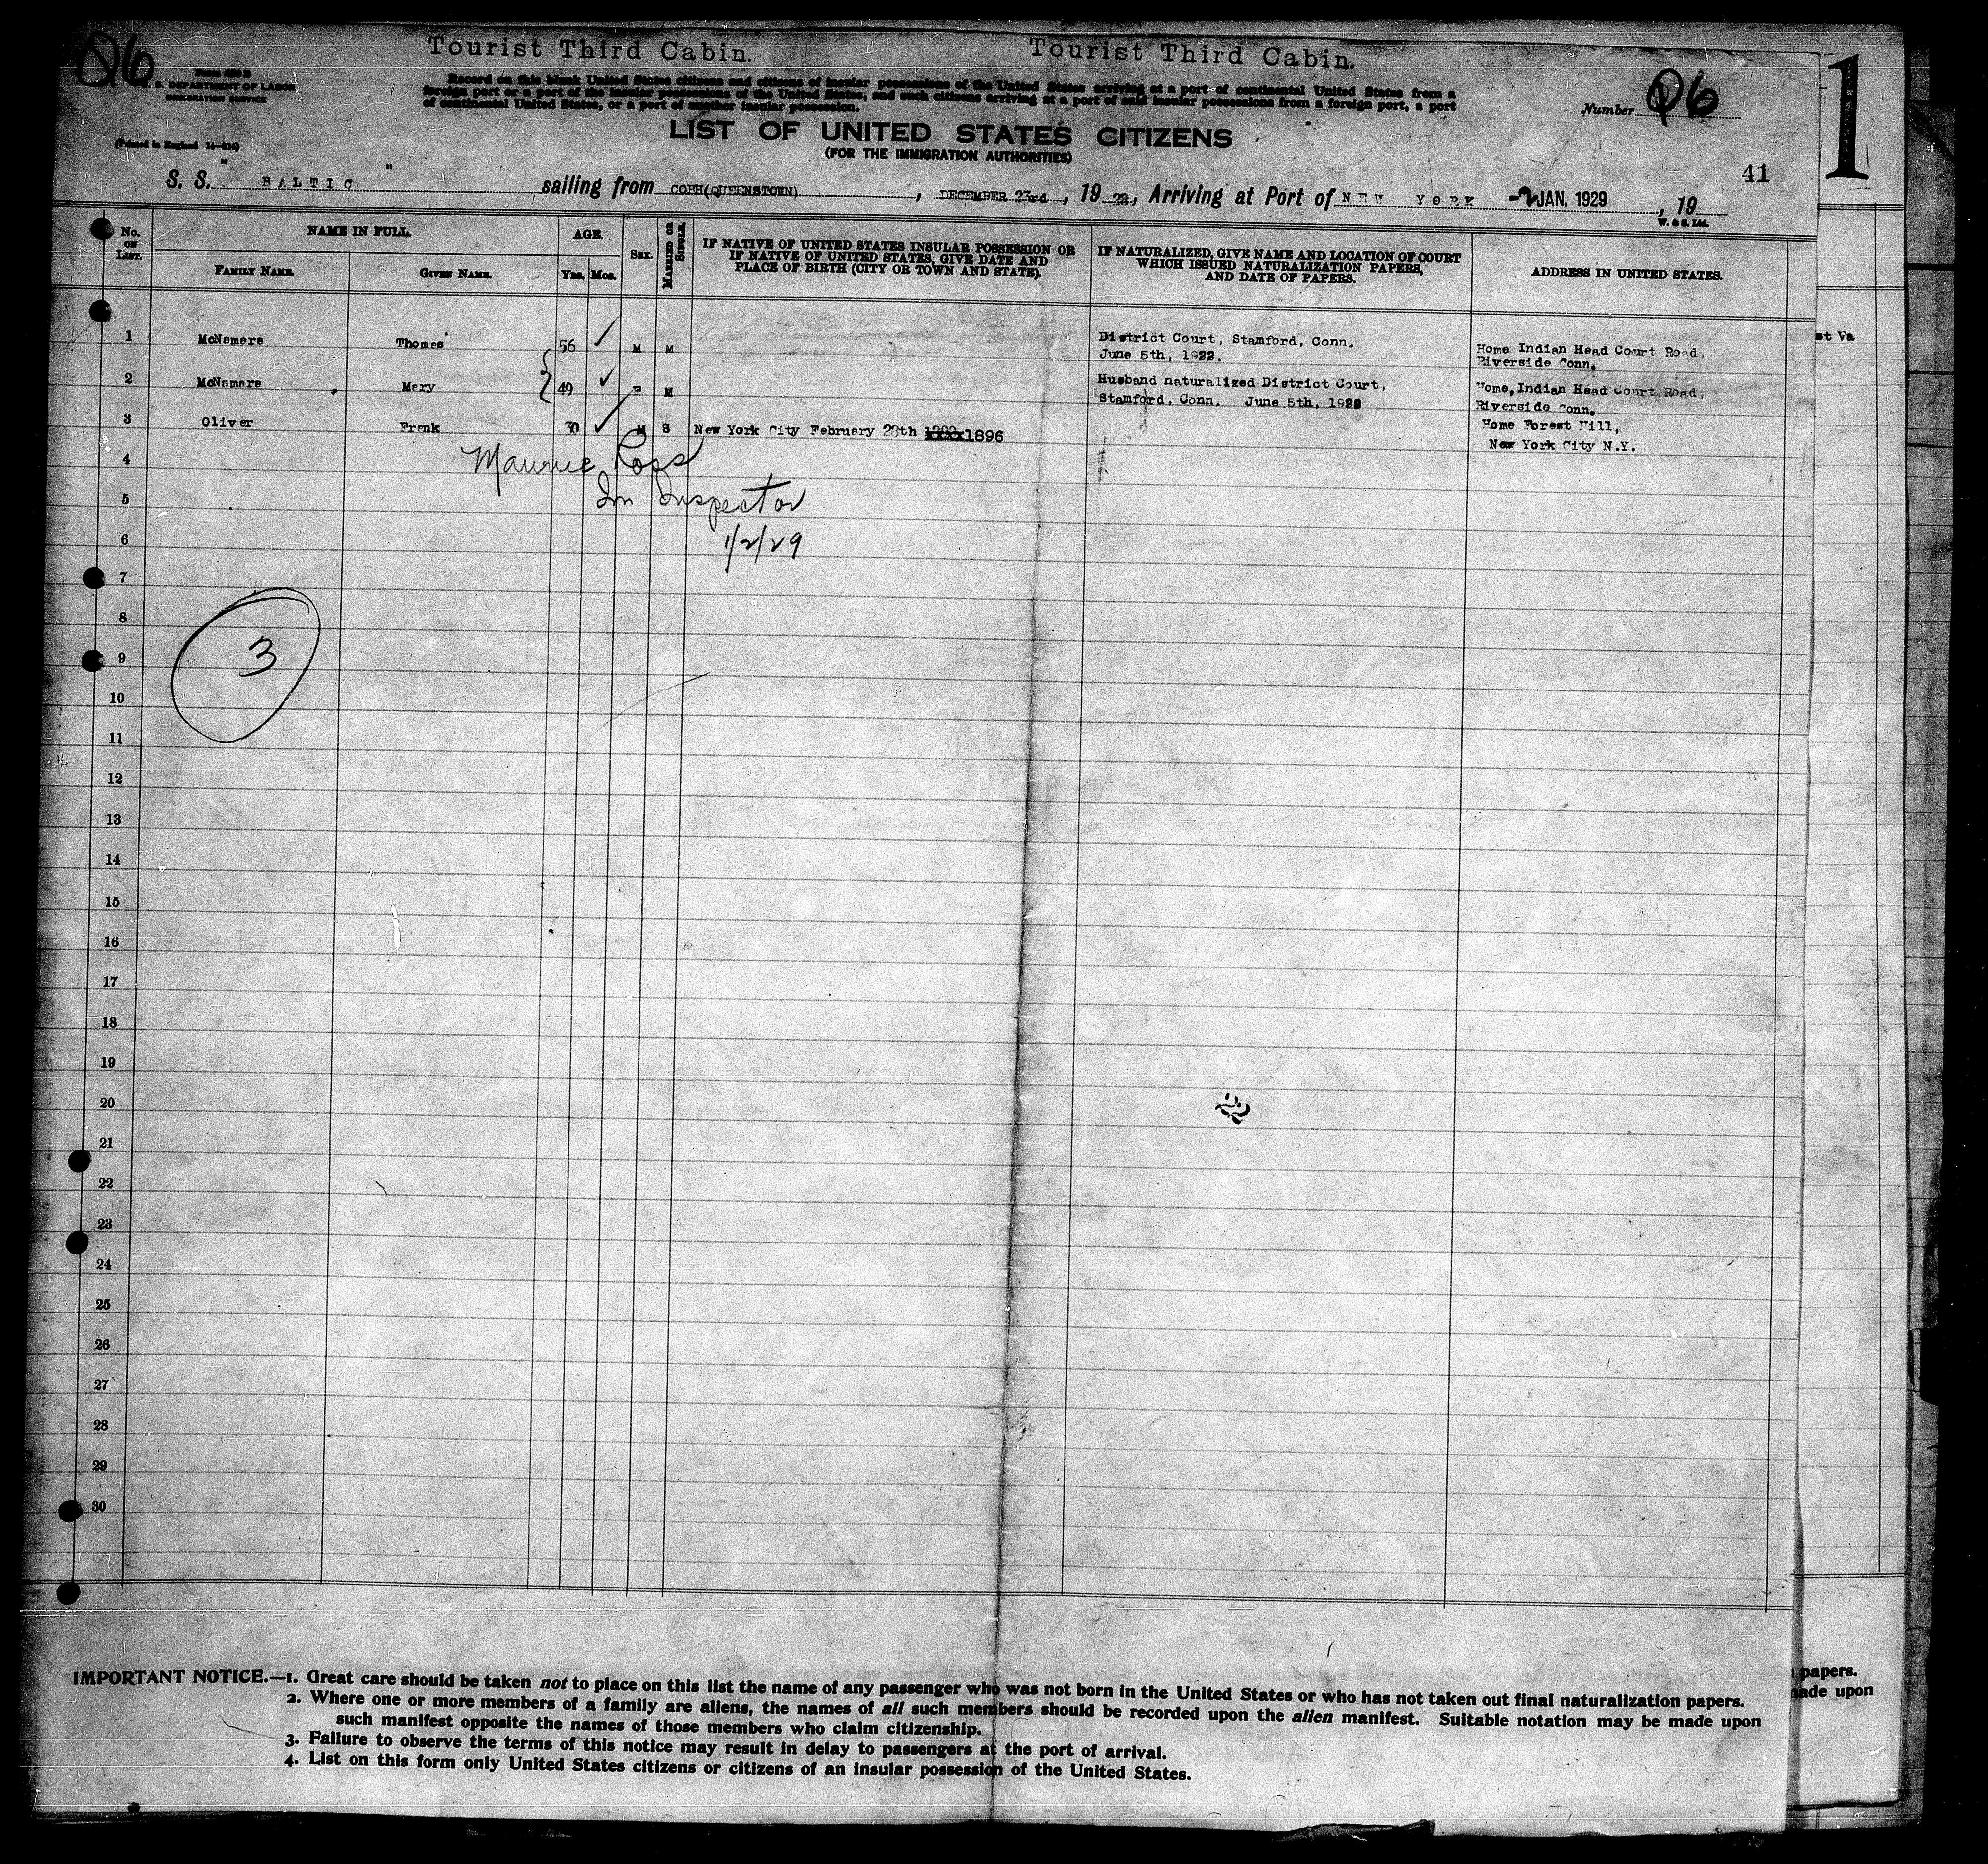 Tourist Third Cabin. Tourist Third Cabin.
Q6
U. S. DEPARTMENT OF LABOR
IMMIGRATION SERVICE
(Printed in England 14—616)
Record on this blank United States citizens and citizens of insular possessions of the United States arriving at a port of continental United States from a
foreign port or a port of the insular possessions of the United States, and such citizens arriving at a port of said insular possessions from a foreign port, a port
of continental United States, or a port of another insular possession.
Number Q6
1
LIST OF UNITED STATES CITIZENS
(FOR THE IMMIGRATION AUTHORITIES)
41
S. S. " BALTIC " sailing from COBH(QUEENSTOWN), DECEMBER 23rd, 19 28, Arriving at Port of NEW YORK -2 JAN. 1929, 19
W. & S. Ltd.
No. ON LIST.
NAME IN FULL.
FAMILY NAME. GIVEN NAME.
AGE.
Yrs. Mos.
SEX.
MARRIED OR SINGLE.
IF NATIVE OF UNITED STATES INSULAR POSSESSION OR
IF NATIVE OF UNITED STATES, GIVE DATE AND
PLACE OF BIRTH (CITY OR TOWN AND STATE).
IF NATURALIZED, GIVE NAME AND LOCATION OF COURT
WHICH ISSUED NATURALIZATION PAPERS,
AND DATE OF PAPERS.
ADDRESS IN UNITED STATES.
1 McNamara Thomas 56 M M District Court, Stamford, Conn.
June 5th, 1922.
Home Indian Head Court Road,
Riverside Conn.
st Va
2 McNamara Mary 49 F M Husband naturalized District Court,
Stamford, Conn. June 5th, 1922
Home, Indian Head Court Road,
Riverside Conn.
3 Oliver Frank 30 M S New York City February 28th 1896
Home Forest Hill,
New York City N.Y.
4
Maurice Ross
5
Im Inspector
6
1/2/29
7
8
3
9
10
11
12
13
14
15
16
17
18
19
20
21
22
23
24
25
26
27
28
29
30
IMPORTANT NOTICE.—1. Great care should be taken not to place on this list the name of any passenger who was not born in the United States or who has not taken out final naturalization papers.
2. Where one or more members of a family are aliens, the names of all such members should be recorded upon the alien manifest. Suitable notation may be made upon
such manifest opposite the names of those members who claim citizenship.
3. Failure to observe the terms of this notice may result in delay to passengers at the port of arrival.
4. List on this form only United States citizens or citizens of an insular possession of the United States.
papers.
made upon